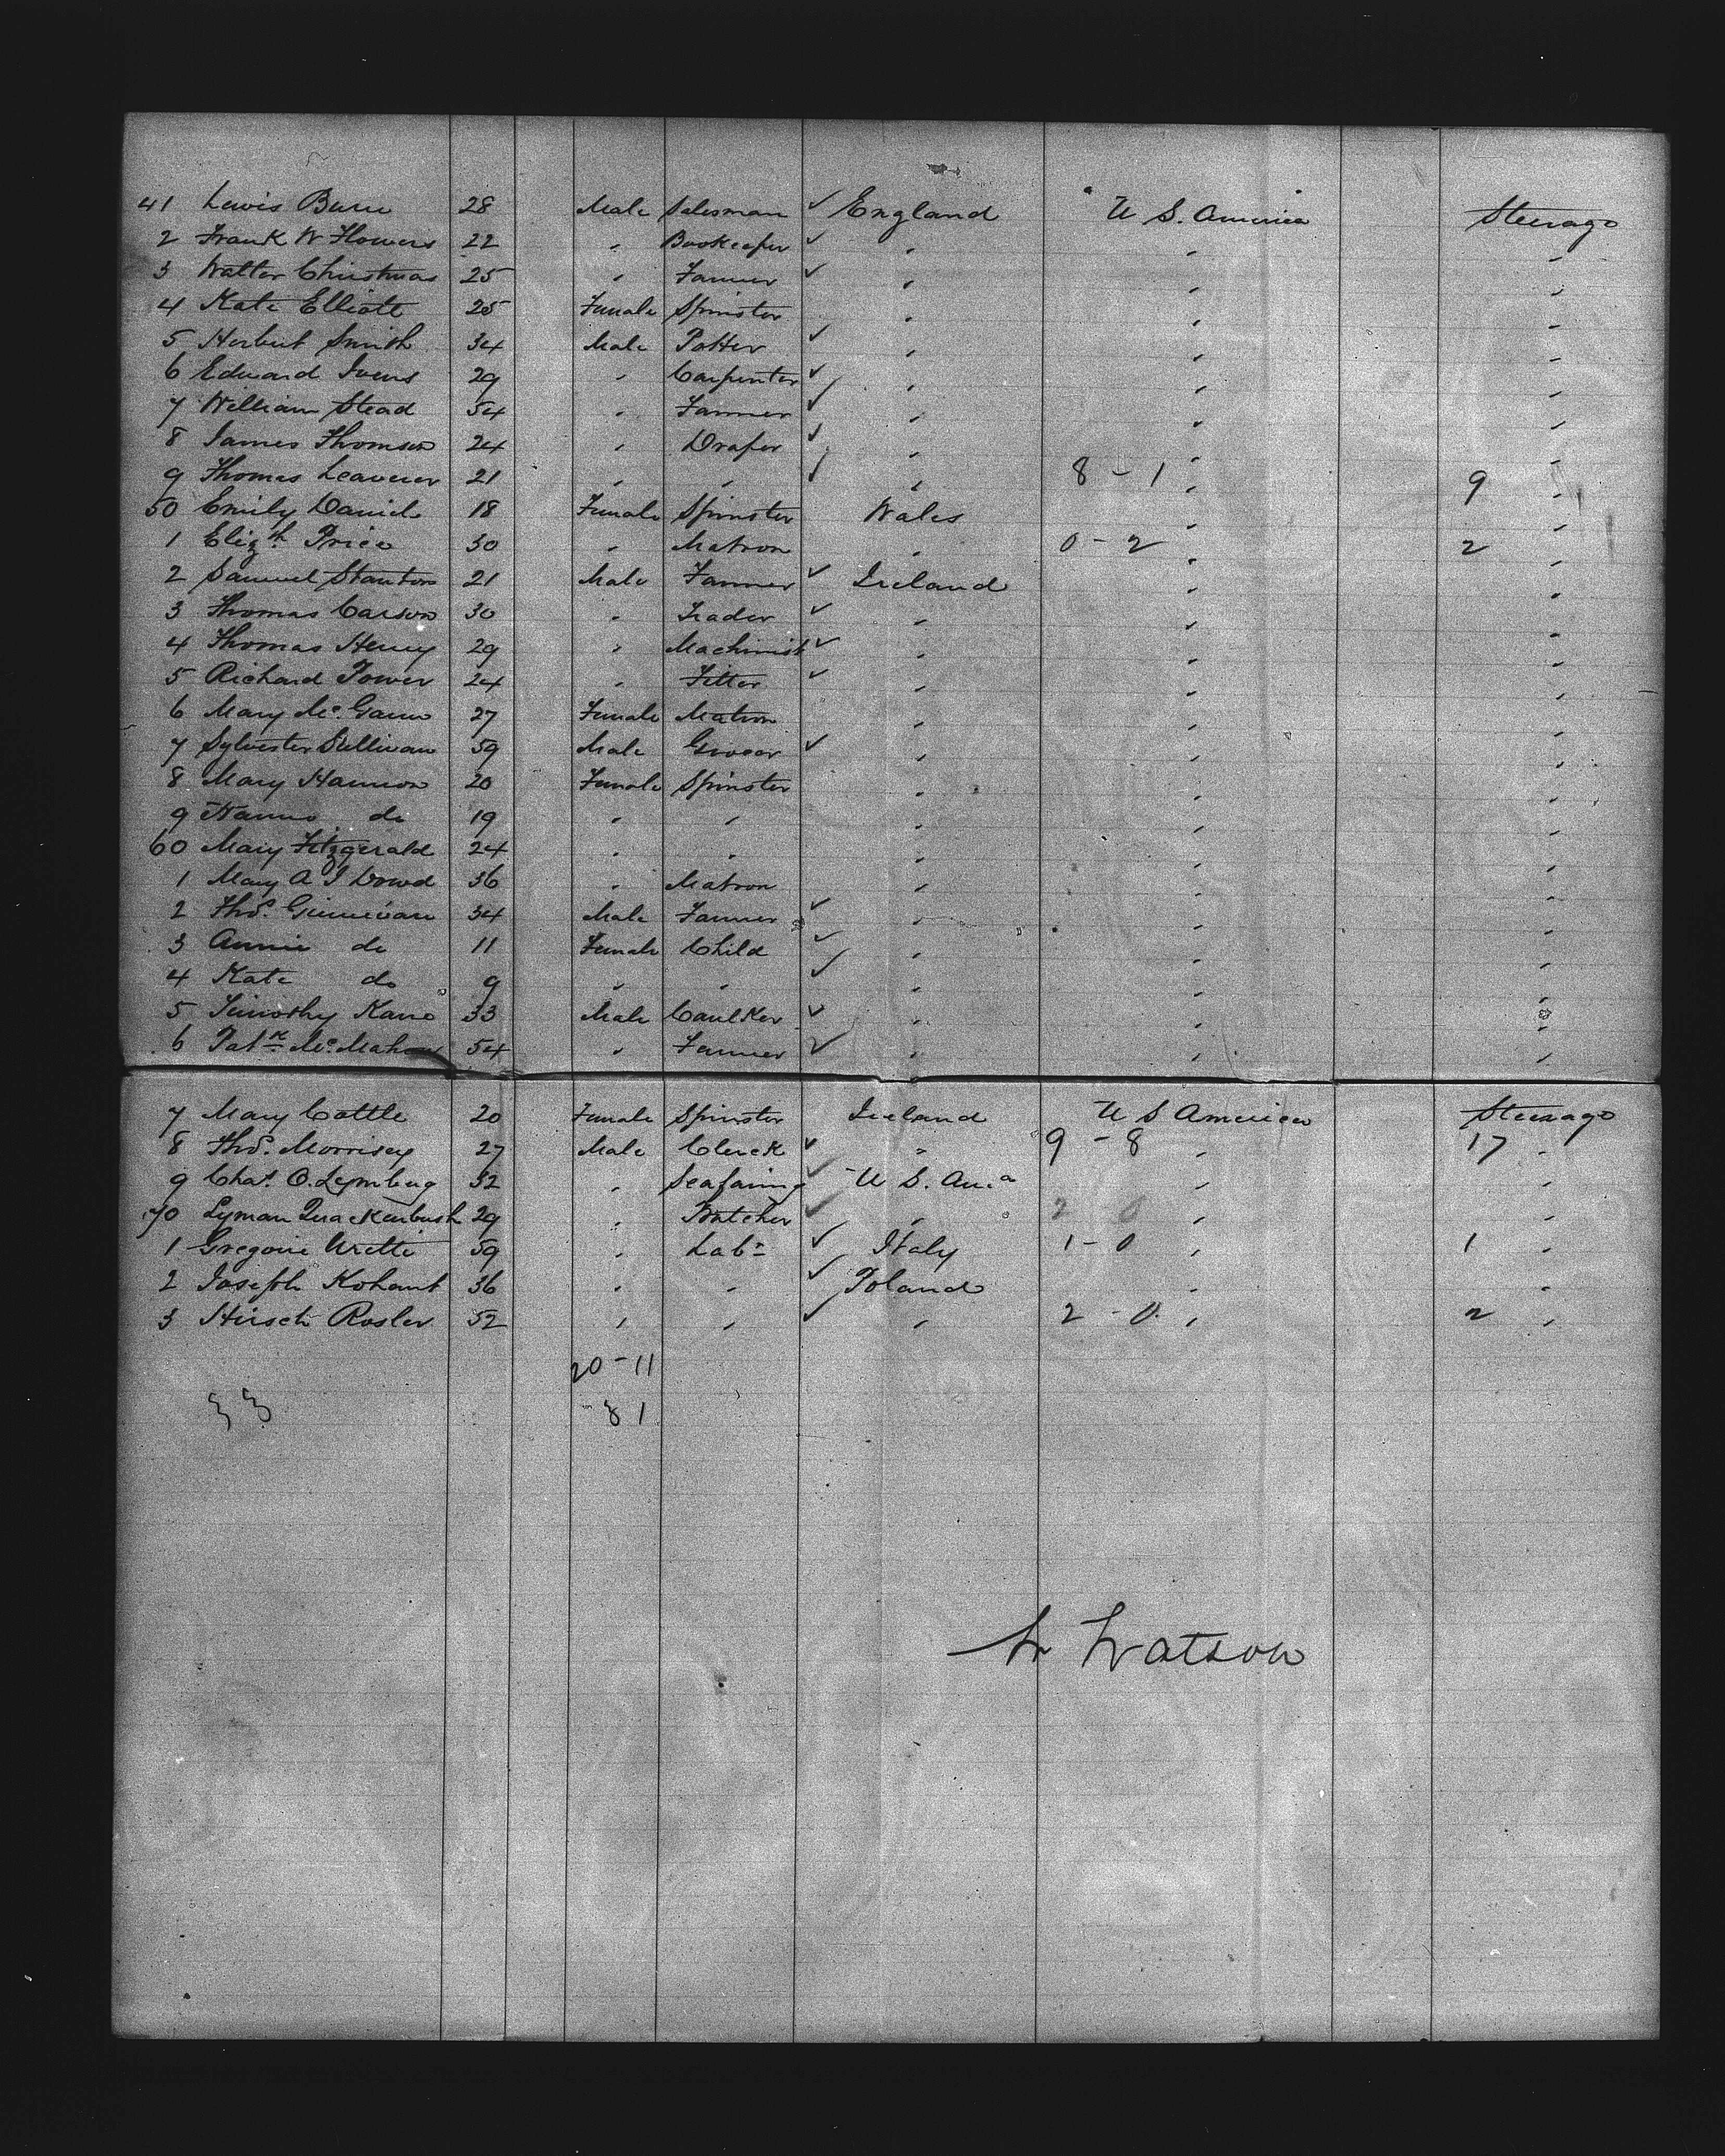 41 Lewis Burn 28 Male Salesman ✓ England U S. America Steerage
2 Frank W Flowers 22 " Bookeeper ✓ " " "
3 Walter Christmas 25 " Farmer ✓ " " "
4 Kate Elliott 25 Female Spinster " " "
5 Herbert Smith 34 Male Potter ✓ " " "
6 Edward Ivens 29 " Carpenter ✓ " " "
7 William Stead 54 " Farmer ✓ " " "
8 James Thomson 24 " Draper ✓ " " "
9 Thomas Leaverer 21 " " ✓ " 8 - 1 " 9 "
50 Emily Daniel 18 Female Spinster Wales " "
1 Eliz.th Price 30 " Matron " 0 - 2 " 2 "
2 Samuel Stanton 21 Male Farmer ✓ Ireland " "
3 Thomas Carson 30 " Trader ✓ " " "
4 Thomas Henry 29 " Machinist ✓ " " "
5 Richard Power 24 " Fitter ✓ " " "
6 Mary Mc. Gann 27 Female Matron " " "
7 Sylvester Sullivan 59 Male Grocer ✓ " " "
8 Mary Hannon 20 Female Spinster " " "
9 do 19 " " " " "
60 Mary Fitzgerald 24 " " " " "
1 Mary A Dowd 36 " Matron " " "
2 Thos. 34 Male Farmer ✓ " " "
3 Annie do 11 Female Child ✓ " " "
4 Kate do 9 " " ✓ " " "
5 Timothy Kane 33 Male Caulker ✓ " " "
6 Patk Mc. Mahon 54 " Farmer ✓ " " "
7 Mary Cottle 20 Female Spinster Ireland U S America Steerage
8 Thos. Morrisey 27 Male Clerck ✓ " 9 - 8 " 17 "
9 Chas. O. Lymburg 32 " Seafaring ✓ U S. Am.a " "
70 Lyman Quackenbush 29 " Butcher ✓ " 2 0 " "
1 Gregoire 59 " Labr ✓ Italy 1 - 0 " 1 "
2 Joseph Kohant 36 " " ✓ Poland " "
3 Hirsch Rosler 52 " " ✓ " 2 - 0 " 2 "
20 - 11
33 31
W Watson